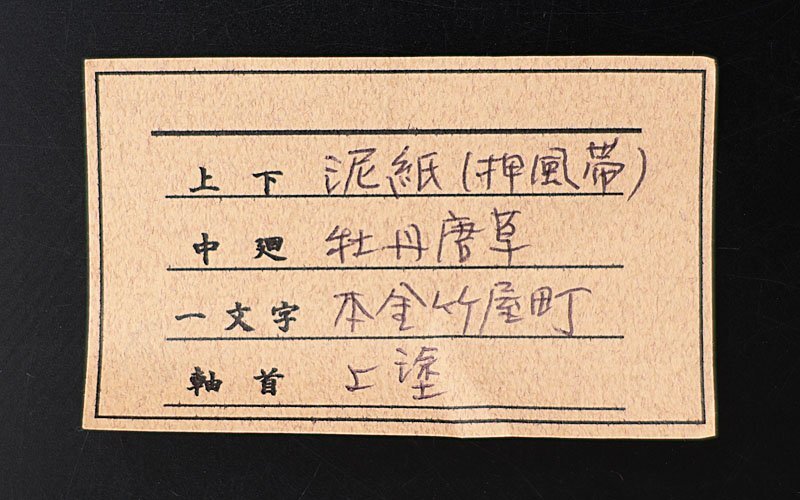 上下 泥紙(押風帯)
中廻 牡丹唐草
一文字 本金竹屋町
軸首 上塗